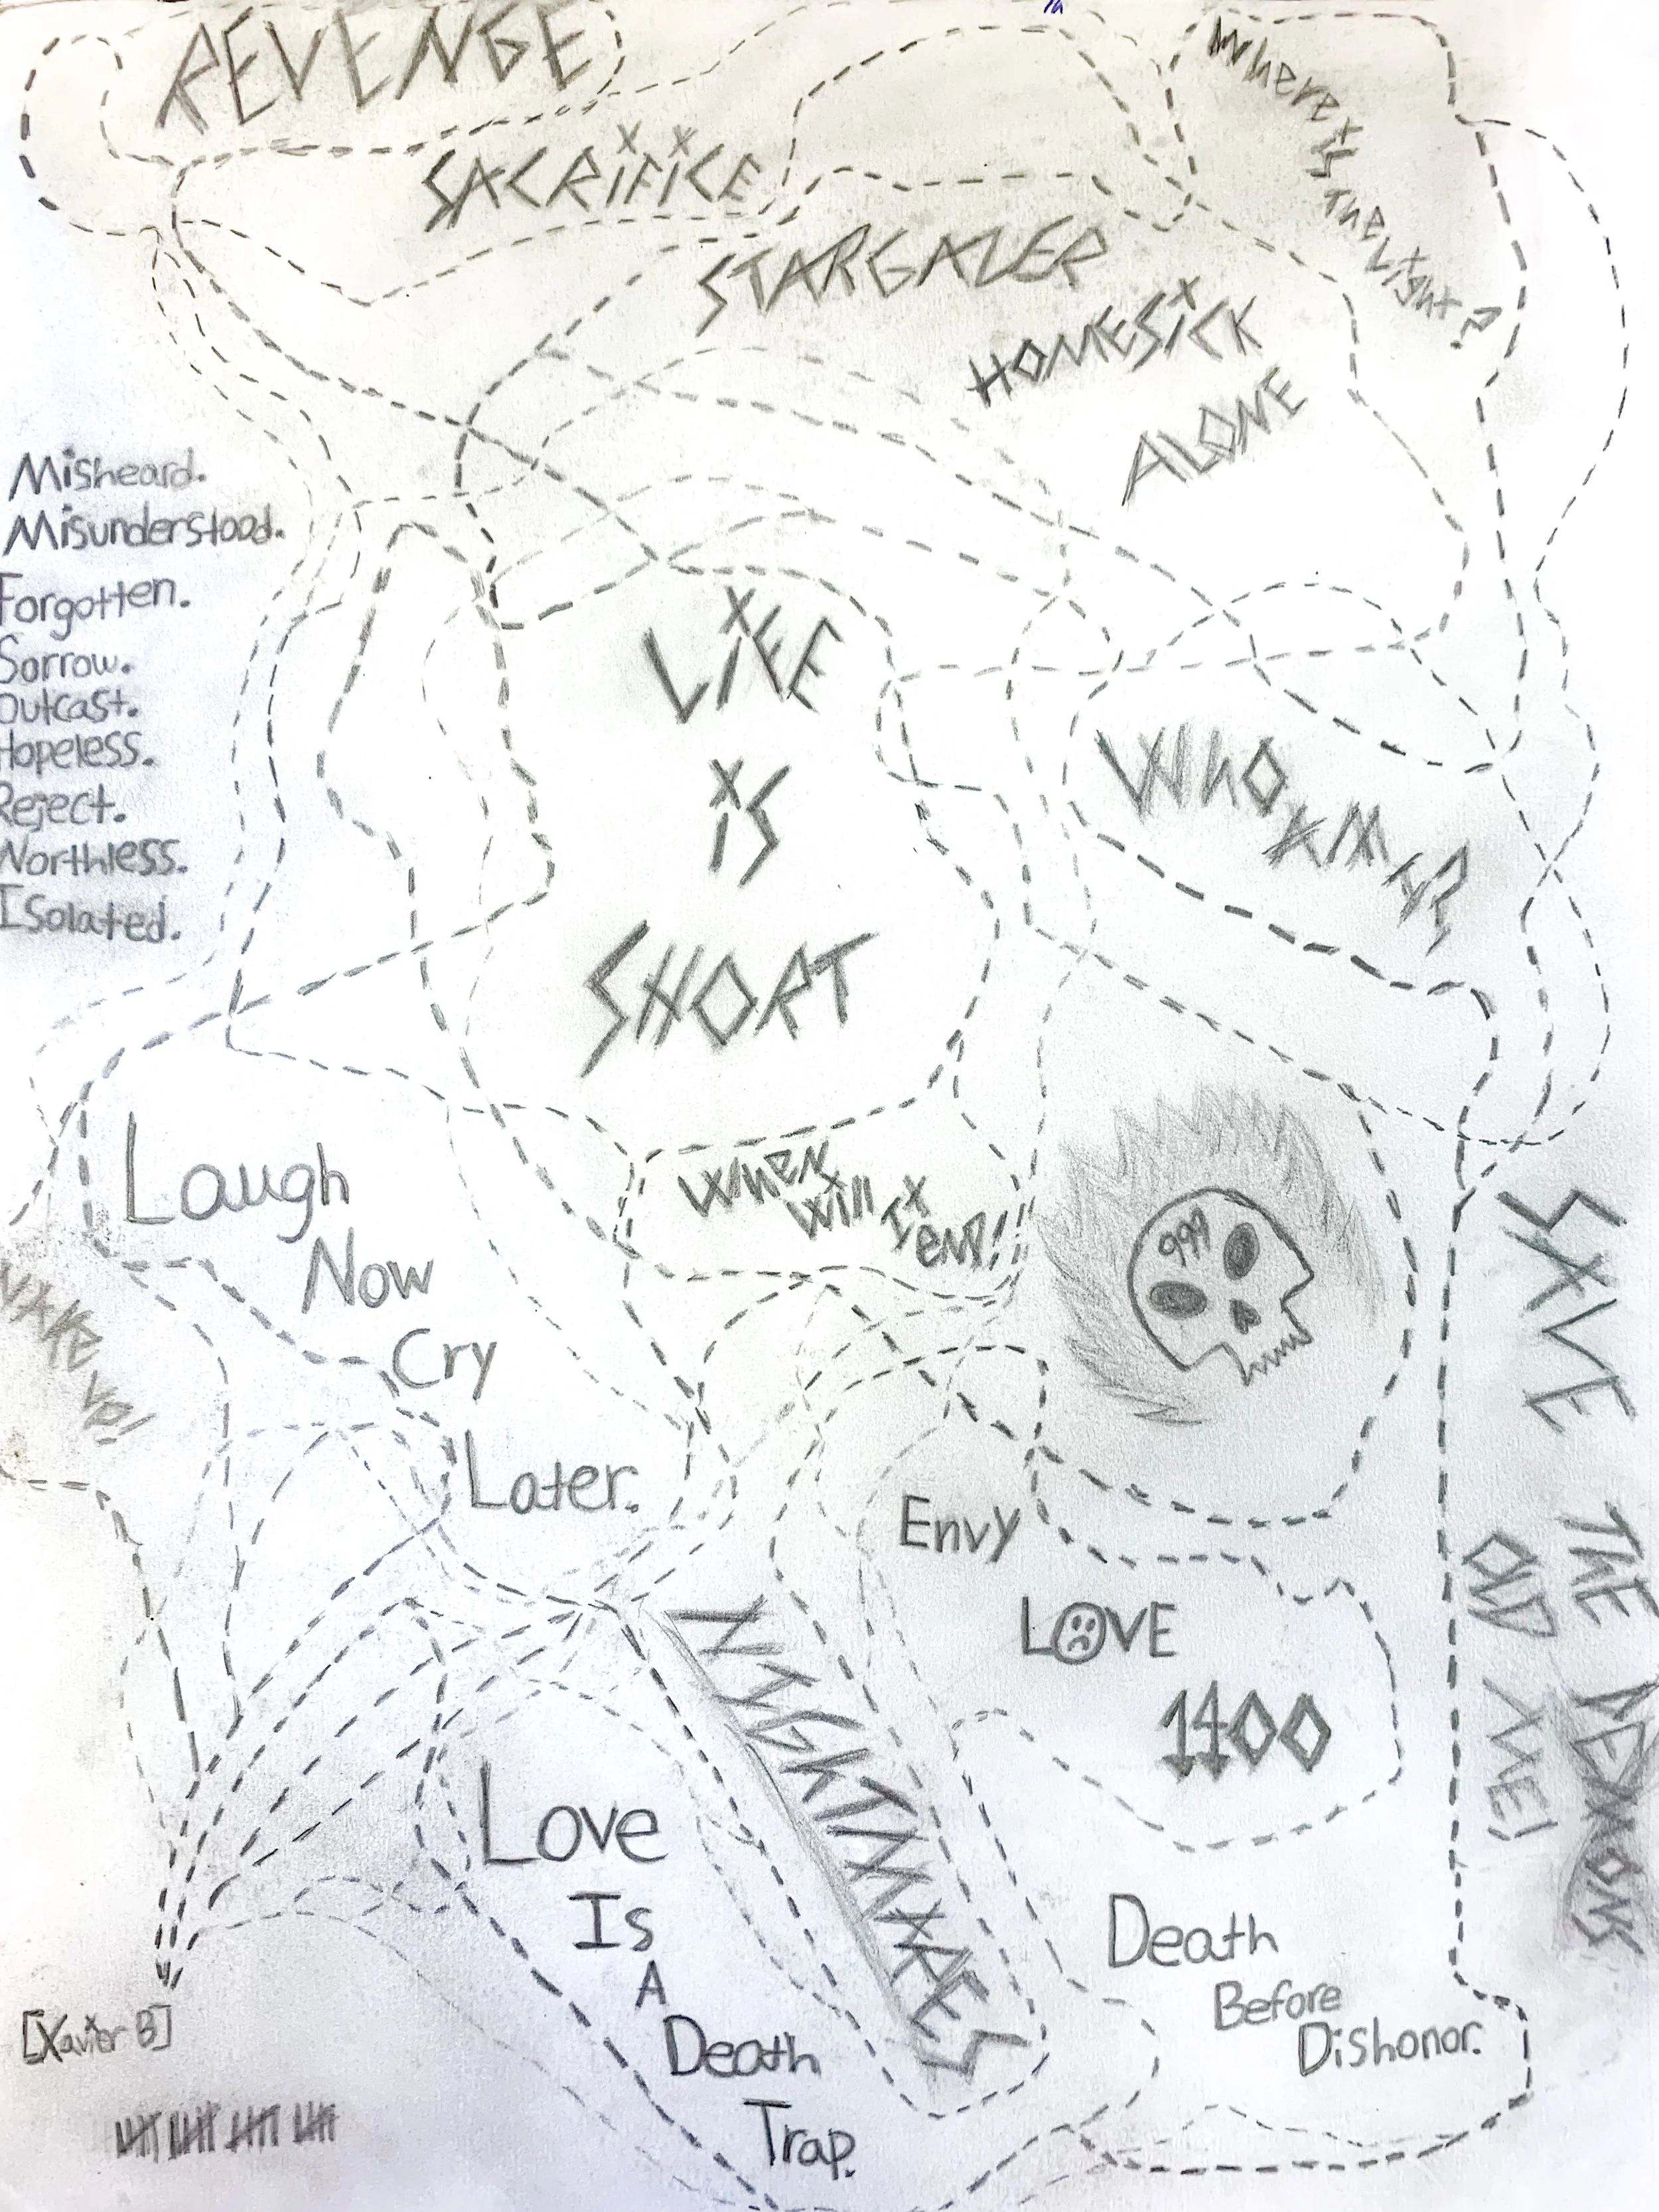 REVENGE
SACRiFiCE
STARGAZER
HOMESiCK
ALONE
Where is the Light?
Misheard.
Misunderstood.
Forgotten.
Sorrow.
Outcast.
Hopeless.
Reject.
Northless.
Isolated.
LiFE
iS
SHORT
WhO XM I?
When
will It
enD!
Laugh
Now
Cry
Later.
WXKE
VP!
999
SXVE
THE
OLD
XME!
DEMONS
Envy
LOVE
1400
NIGHTMXRES
Love
Is
A
Death
Trap.
Death
Before
Dishonor.
[Xavier B]